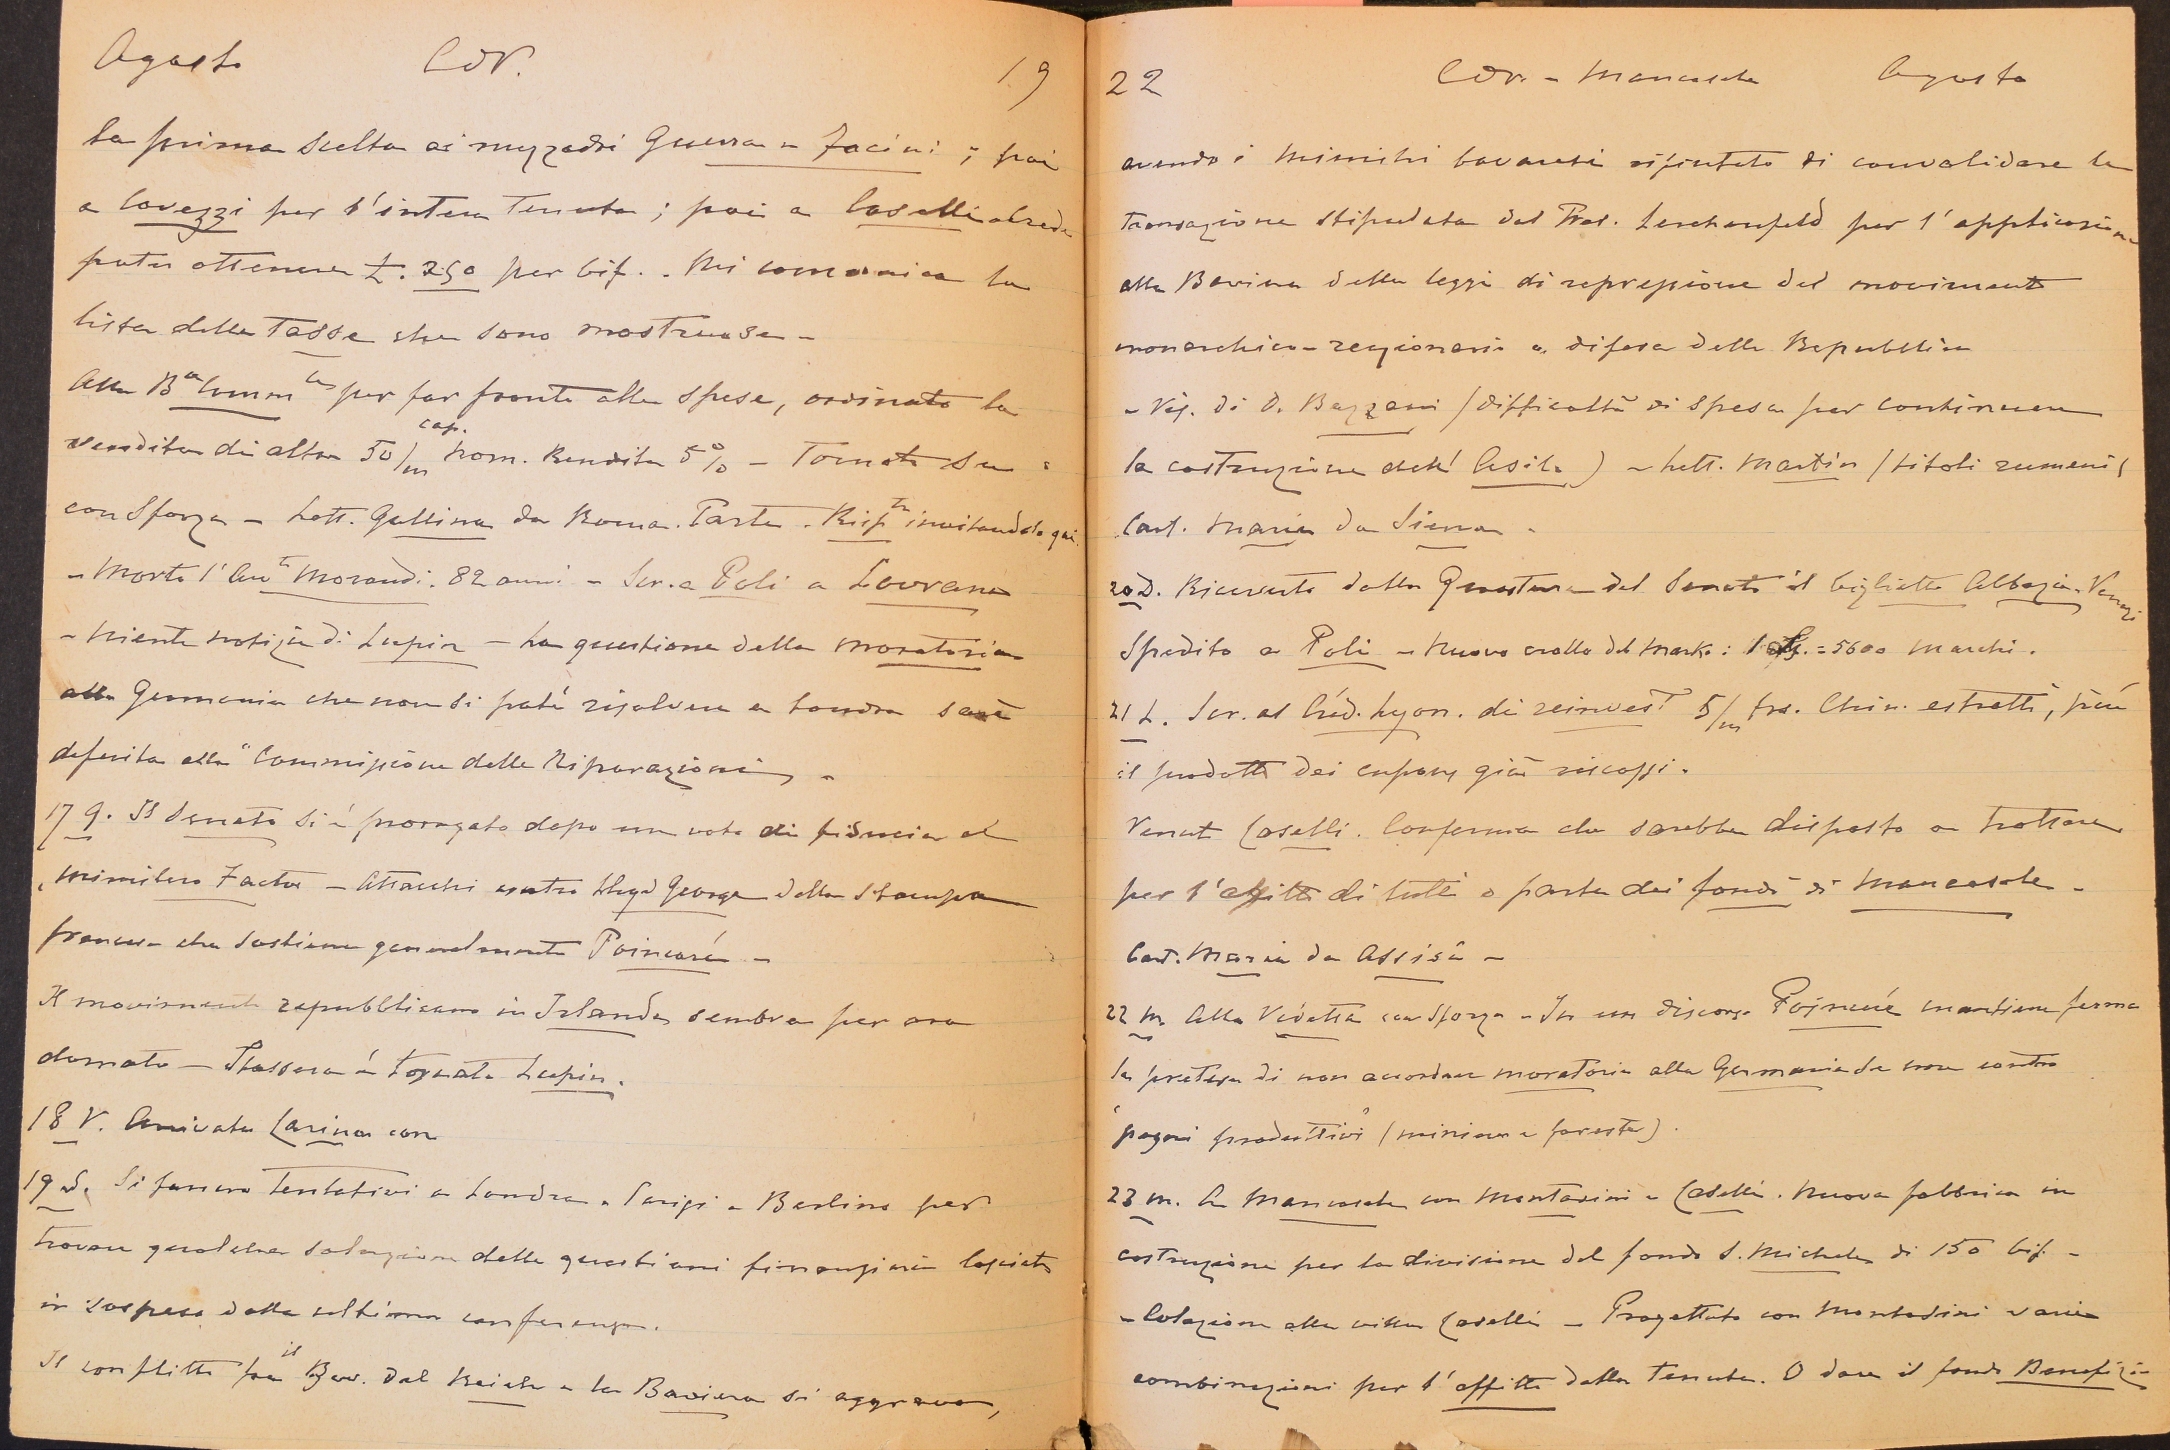 Agosto CdV. 19
la prima scelta ai mezzadri Guerra e Facini ; poi
a Cavezzi per l'intera Tenuta ; poi a Caselli
poter ottenere £. 250 per bif. . Mi comunica la
lista delle Tasse che sono mostruose -
Alla Bca Commle per far fronte alle spese, ordinato la
vendita di altre 50/m cap. nom. Rendita 5% - Tornato su
con Sforza - Lett. Gallina da Roma. Parte . Rispto invitandolo qui.
- Morto l' Morandi. 82 anni - Scr. a Poli a Lovrana
- Niente notizie di Lupin - La questione della moratoria
alla Germania che non si poté risolvere a Londra sarà
deferita alla "Commissione delle Riparazioni" -
17 G. Il Senato si è prorogato dopo un voto di fiducia al
ministero Facta - Attacchi contro Lloyd George della stampa
francese che sostiene generalmente Poincaré -
Il movimento repubblicano in Irlanda sembra per ora
domato - Stassera è tornato Lupin.
18 V. Arrivata Carina con
19 S. Si fanno tentativi a Londra a Parigi a Berlino per
trovare qualche soluzione delle questioni finanziarie lasciate
in sospeso dalla ultima conferenza.
Il conflitto fra il Gov. del Reich e la Baviera si aggrava,
22 CdV. - Mancasale Agosto
avendo i ministri bavaresi rifiutato di convalidare la
transazione stipulata dal Pres. Lerchenfeld per l'applicazione
alla Baviera delle leggi di repressione del movimento
monarchico-reazionario a difesa della Repubblica
- Vis. di D. Bazzani (difficoltà di spesa per continuare
la costruzione dell' Asilo) - Lett. Martin (titoli rumeni)
Cart. Maria da Siena -
20 D. Ricevuto dalla Questura del Senato il biglietto Abbazia-Venezia
Spedito a Poli - Nuovo crollo del Marko: = 5600 marchi.
21 L. Scr. al Créd. Lyon. di reinvest 5/m frs. Chin. estratti, più
il prodotto dei cupons già riscossi.
Venut Caselli. Conferma che sarebbe disposto a trattare
per l'affitto di tutti o parte dei fondi di Mancasale -
Cart. Maria da Assisi -
22 M. Alla Vedetta con Sforza - In un discorso Poincaré mantiene ferma
la pretesa di non accordare moratoria alla Germania se non contro
"pegni produttivi" (miniere e foreste).
23 M. A Mancasale con Montasini e Caselli. Nuova fabbrica in
costruzione per la divisione del fondo S. Michele di 150 bif. -
- Colazione alla villa Caselli - Progettato con Montasini varie
combinazioni per l'affitto della Tenuta. O dare il fondo Benefizio